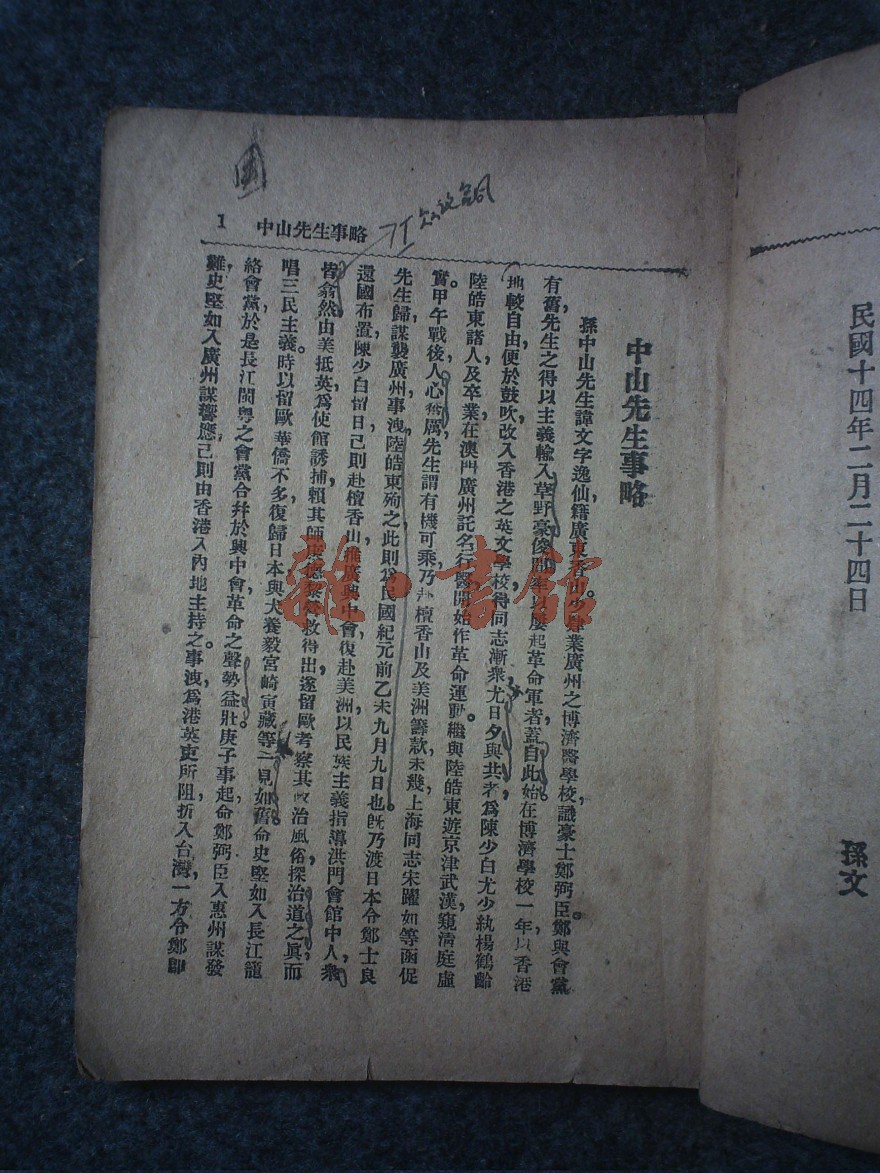 民國十四年二月二十四日
孫文
1 中山先生事略
中山先生事略
孫中山先生諱文字逸仙籍廣東香山少肄業廣州之博濟醫學校，識豪士鄭弼臣鄭與會黨
有舊，先生之得以主義輸入草野豪俊，率以屢起革命軍者蓋自此始在博濟學校一年以香港
地較自由，便於鼓吹改入香港之英文學校得同志漸衆尤日夕與共者爲陳少白尤少紈楊鶴齡
陸皓東諸人及卒業在澳門廣州託名行醫開始作革命運動。繼與陸皓東遊京津武漢窺淸庭虛
實。甲午戰後人心奮厲先生謂有機可乘乃赴檀香山及美洲籌款，未幾，上海同志宋躍如等函促
先生歸謀襲廣州事洩陸皓東殉之此則爲民國紀元前乙未九月九日也旣乃渡日本令鄭士良
還國布置陳少白留日己則赴檀香山推廣興中會復赴美洲以民族主義指導洪門會館中人，衆
皆翕然由美抵英爲使館誘捕賴其師康德黎營救得出遂留歐考察其政治風俗探治道之眞而
唱三民主義。時以留歐華僑不多復歸日本與犬養毅宮崎寅藏等一見如舊命史堅如入長江籠
絡會黨於是長江閩粤之會黨合幷於興中會革命之聲勢益壯。庚子事起命鄭弼臣入惠州謀發
難，史堅如入廣州謀響應，己則由香港入內地主持之。事洩，爲港英吏所阻折入台灣，一方令鄭卽
雜·書館